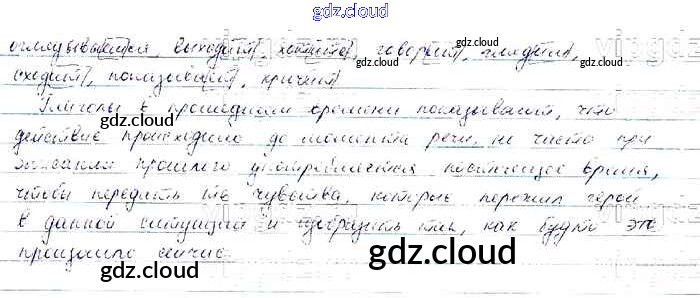 gdz.cloud
оглядывается, выходит, хотите, говорит, глядит,
сходит, показывает, кричит
gdz.cloud gdz.cloud
Глаголы в прошедшем времени показывают, что
действие происходило до момента речи, но часто при
gdz.cloud gdz.cloud
описании прошлого употребляется настоящее время,
чтобы передать те чувства, которые пережил герой
в данной ситуации и изобразить так, как будто это
gdz.cloud
произошло сейчас.
gdz.cloud
gdz.cloud